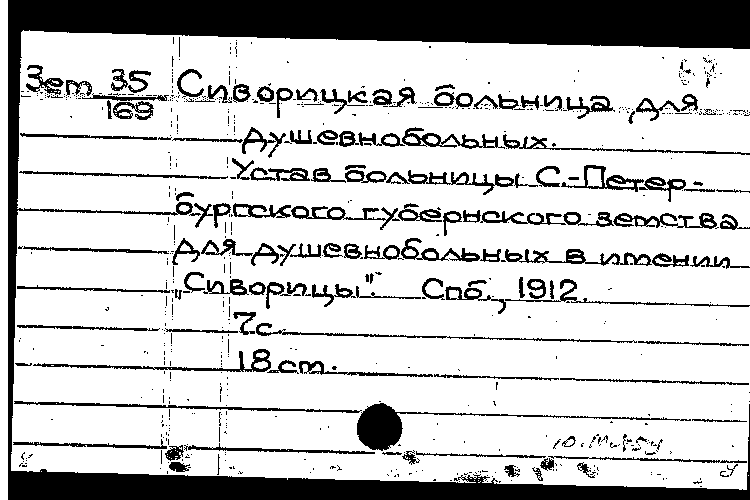 Зем 35/169 Сиворицкая больница для
душевнобольных.
Устав больницы С.-Петер-
бургского губернского земства
для душевнобольных в имении
„Сиворицы". Спб., 1912.
7с.
18 см.